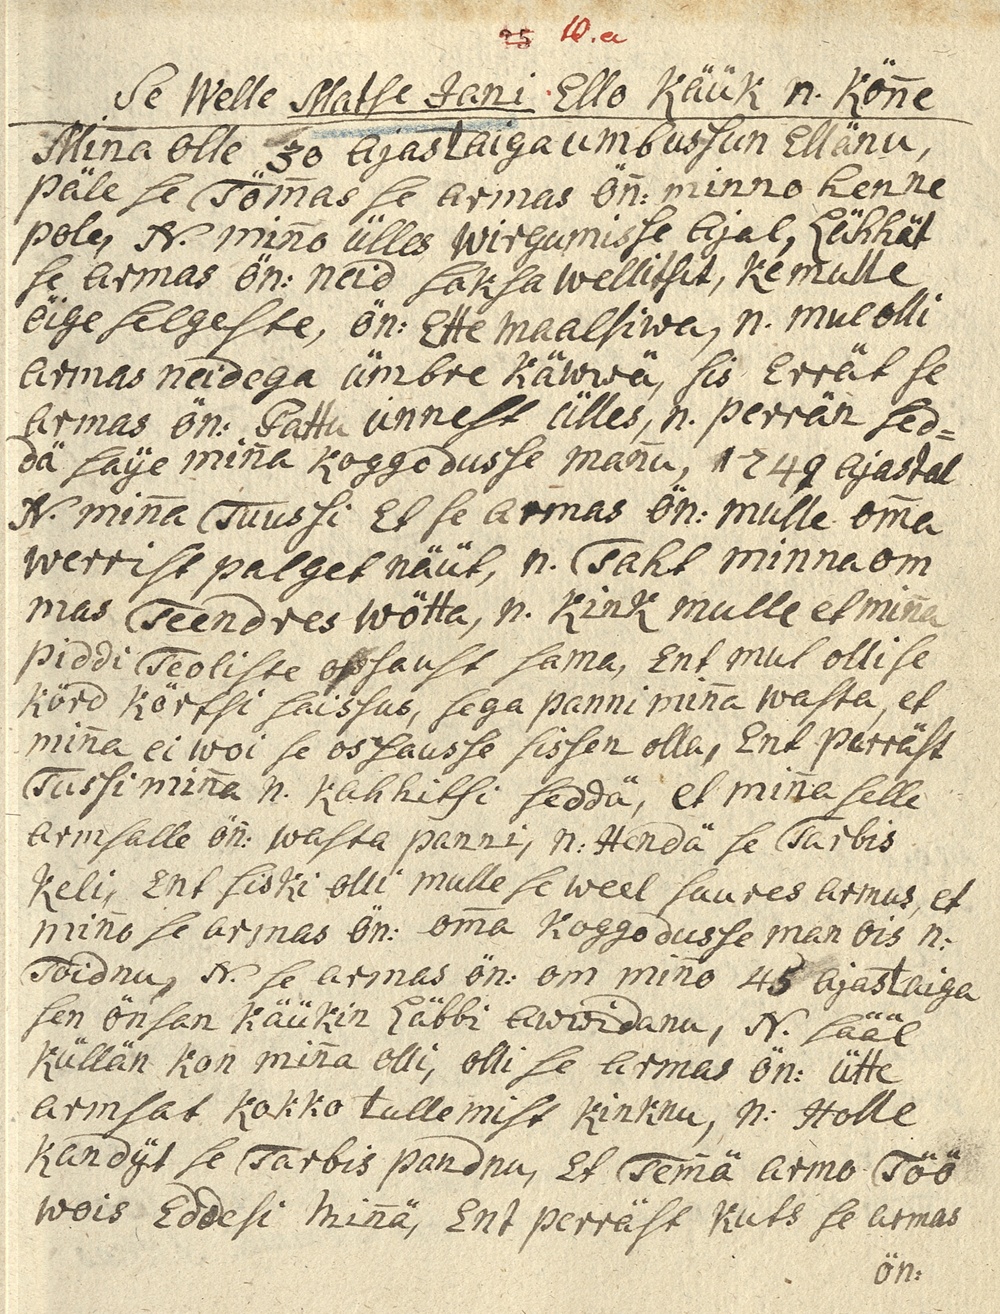 25 10.a
Se Welle Matse Jani Ello Käük n. Kön̄e
Min̄a olle 30 Ajastaiga umbussun Ellänu,
päle se Töm̄as se armas ön̄: minno henne
pole, N. min̄o ülles wirgumisse Ajal, Lähhät
se armas ön: neid saksa wellitsit, ke mulle
öige selgeste, ön: Ette maalsiwa, n. mul olli
armas neidega ümbre Käwwä, sis Errät se
armas ön: Pattu unnest ülles, n. perrän sed=
dä saije min̄a Koggodusse man̄u, 1749 ajastal
N. min̄a Tuussi Et se armas ön: mulle om̄a
werrist palget näüt, n. Taht minna om
mas Teendres wötta, n. Kink mulle et min̄a
piddi Teoliste ossaust sama, Ent mul olli se
körd körtsi saissus, sega panni min̄a wasta, et
min̄a ei woi se ossausse sissen olla, Ent perräst
Tussi min̄a n. Kahhitsi seddä, et min̄a selle
armsalle ön̄: wasta panni, n: Hendä se Tarbis
Keli, Ent siski olli mulle se weel suures armus, et
min̄o se armas ön: om̄a Koggodusse man ois n:
Toidnu, N. se armas ön: om min̄o 45 ajastaiga
sen önsan Käükin Läbbi awwidanu, N. sääl
Küllän kon min̄a olli, olli se armas ön: ütte
armsat kokko tullemist kinknu, n: Holle
kandijt se Tarbis pandnu, Et Tem̄ä armo Töö
wois Eddesi Min̄ä, Ent perräst kuts se armas
ön: